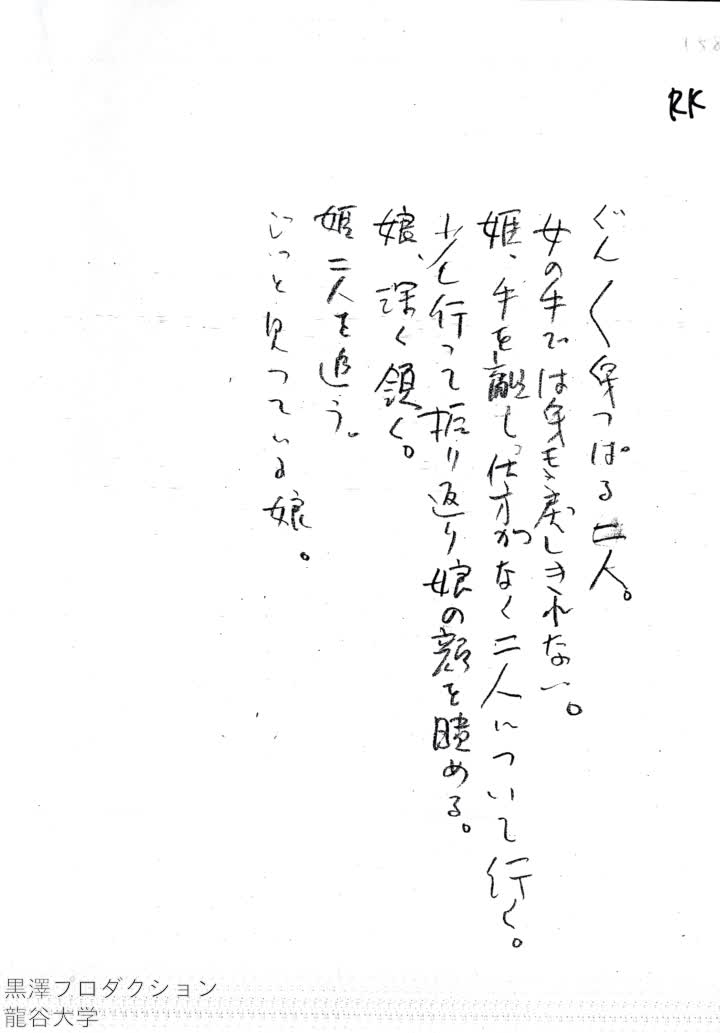 RK
ぐん〳〵引っぱる二人。
女の手では引き戻しきれない。
姫、手を離し、仕方がなく二人について行く。
少し行って振り返り娘の顔を瞶める。
娘、深く頷く。
姫二人を追う。
じっと見つている娘。
黒澤プロダクション
龍谷大学